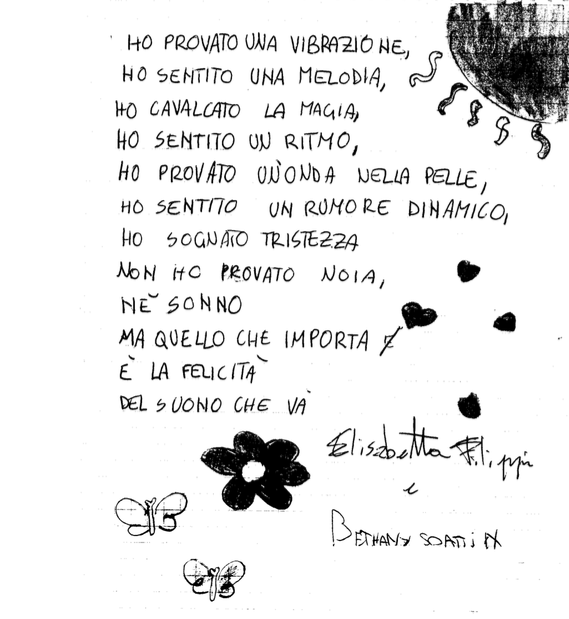 HO PROVATO UNA VIBRAZIONE,
HO SENTITO UNA MELODIA,
HO CAVALCATO LA MAGIA,
HO SENTITO UN RITMO,
HO PROVATO UN'ONDA NELLA PELLE,
HO SENTITO UN RUMORE DINAMICO,
HO SOGNATO TRISTEZZA
NON HO PROVATO NOIA,
NE' SONNO
MA QUELLO CHE IMPORTA
È LA FELICITÀ
DEL SUONO CHE VÀ
Elisabetta Filippi
e
BETHANY